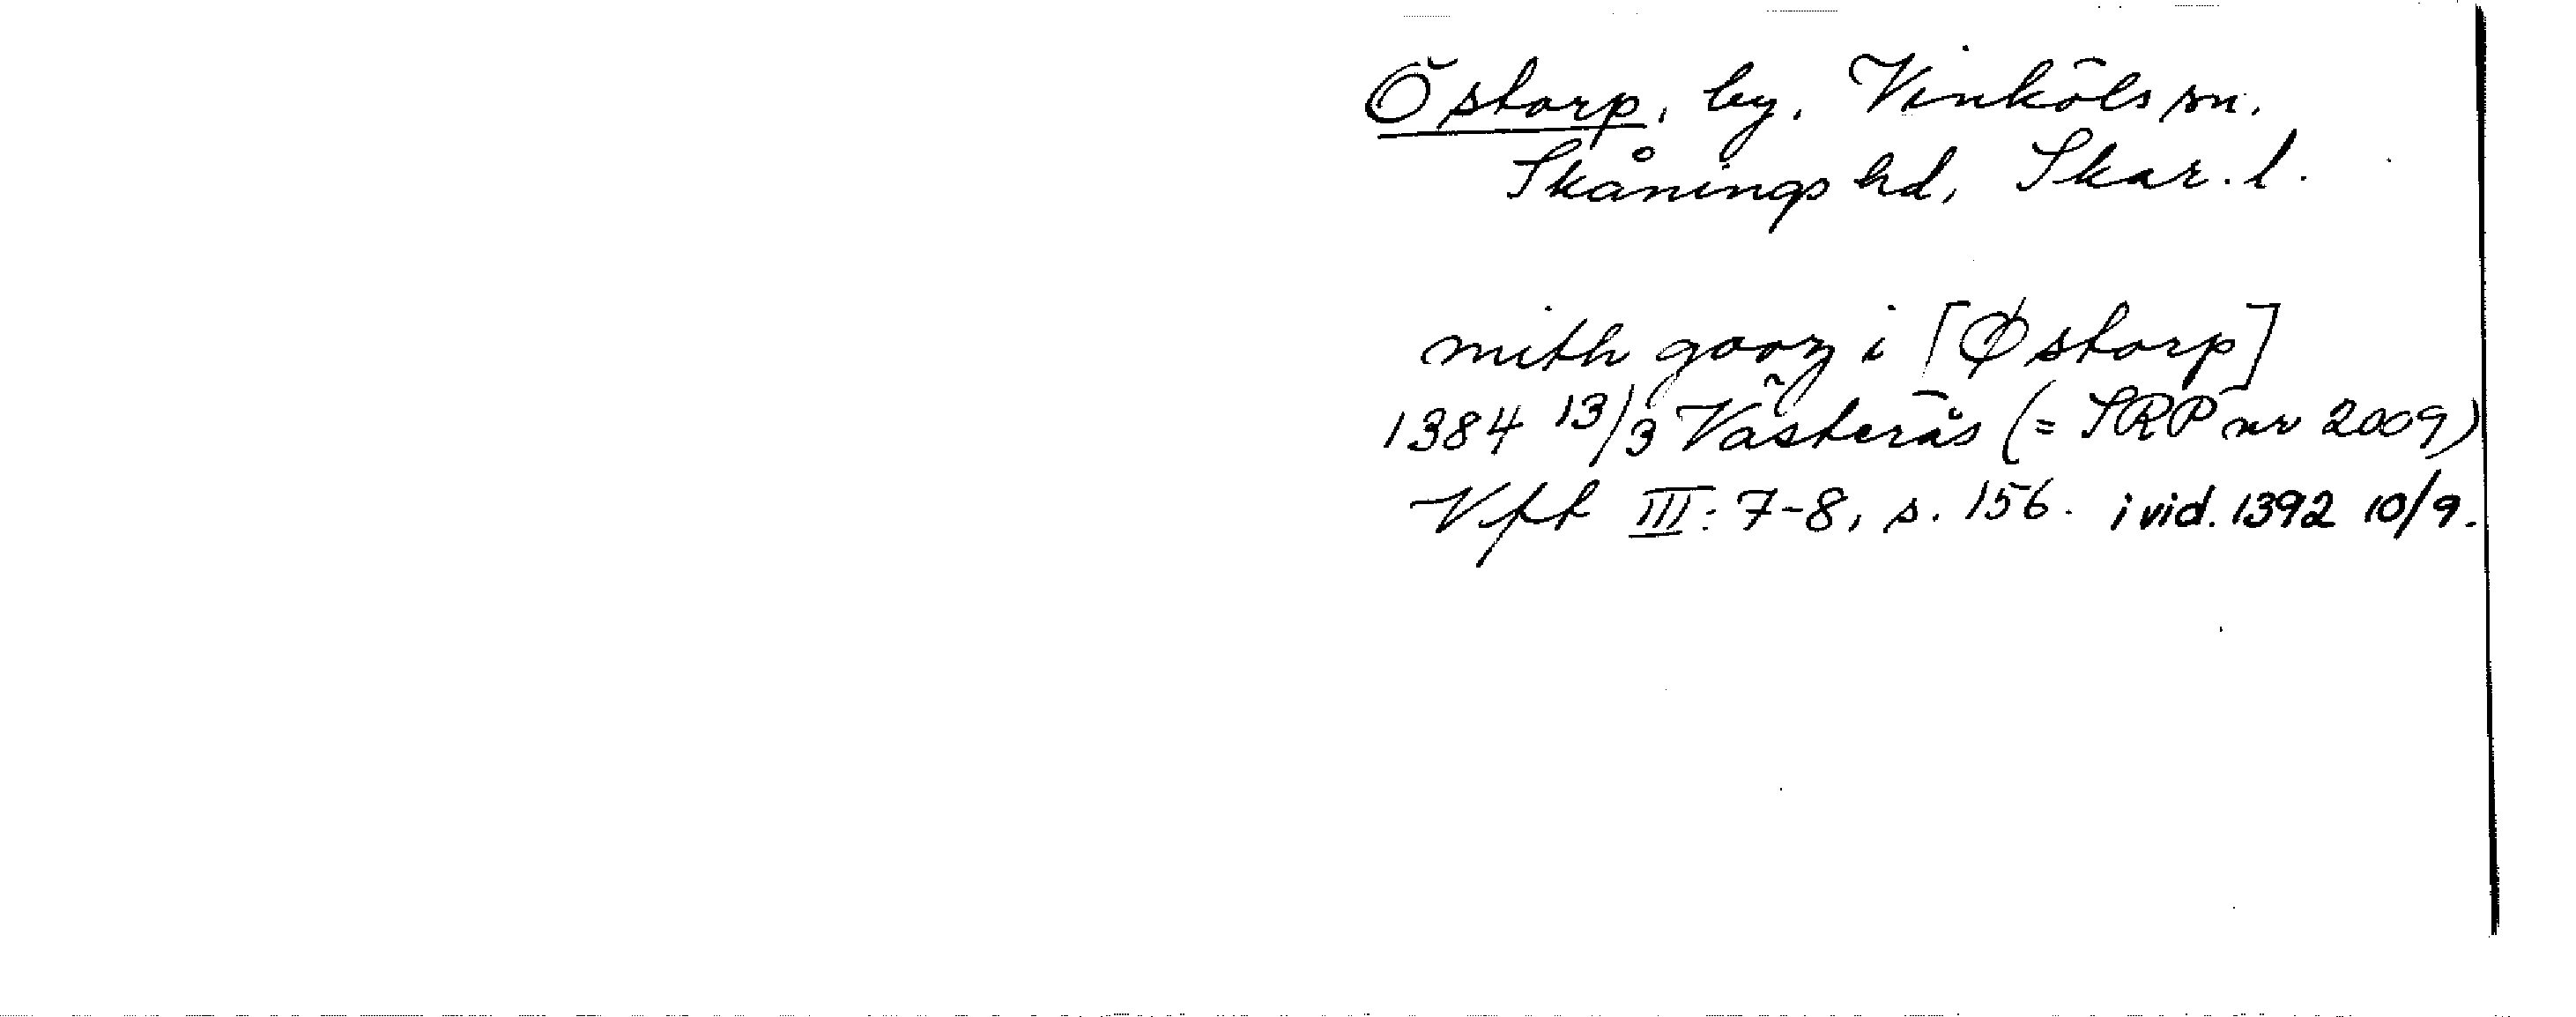 Östorp, by, Vinköls sn.
Skånings hd, Skar. l.
mith gooz i [Østorp]
1384 13/3 Västerås (= SRP nr 2009)
Vft III: 7-8, s. 156. i vid. 1392 10/9.